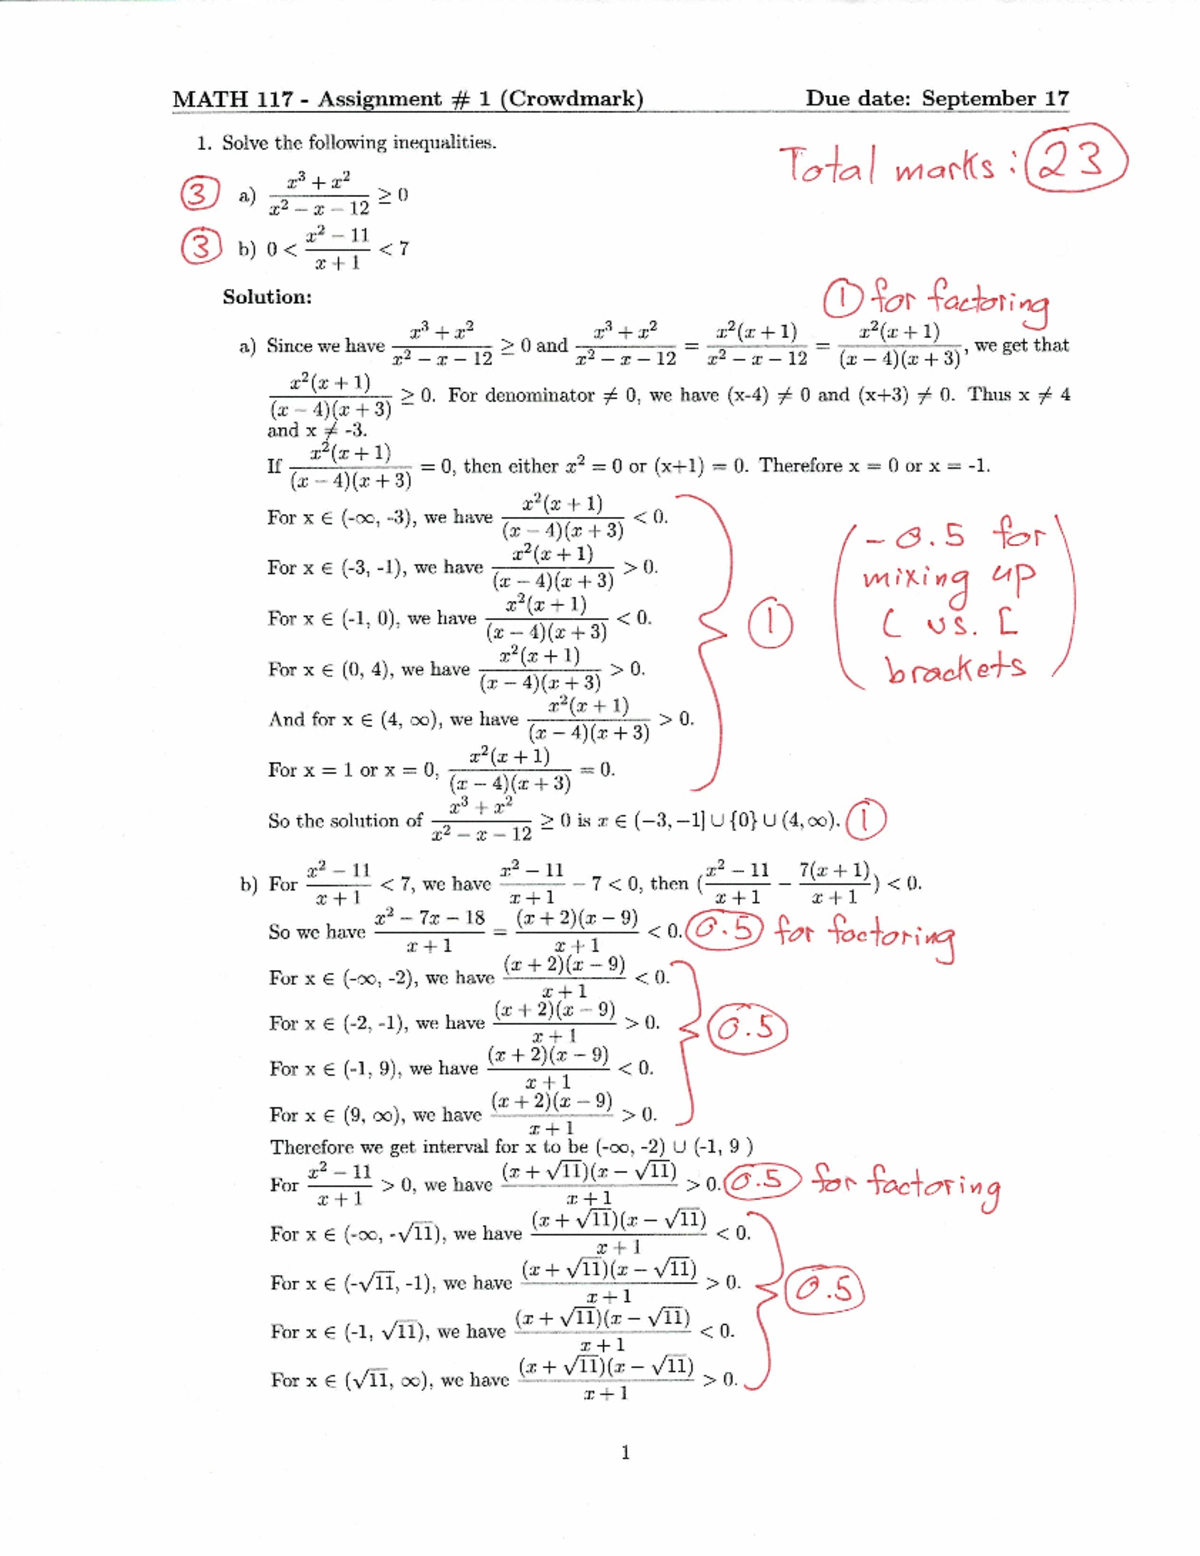 MATH 117 - Assignment # 1 (Crowdmark) Due date: September 17
1. Solve the following inequalities.
Total marks: 23
3 a) (x³ + x²)/(x² − x − 12) ≥ 0
3 b) 0 < (x² − 11)/(x + 1) < 7
Solution:
1 for factoring
a) Since we have (x³ + x²)/(x² − x − 12) ≥ 0 and (x³ + x²)/(x² − x − 12) = x²(x + 1)/(x² − x − 12) = x²(x + 1)/((x − 4)(x + 3)), we get that
x²(x + 1)/((x − 4)(x + 3)) ≥ 0. For denominator ≠ 0, we have (x-4) ≠ 0 and (x+3) ≠ 0. Thus x ≠ 4
and x ≠ -3.
If x²(x + 1)/((x − 4)(x + 3)) = 0, then either x² = 0 or (x+1) = 0. Therefore x = 0 or x = -1.
For x ∈ (-∞, -3), we have x²(x + 1)/((x − 4)(x + 3)) < 0.
For x ∈ (-3, -1), we have x²(x + 1)/((x − 4)(x + 3)) > 0.
For x ∈ (-1, 0), we have x²(x + 1)/((x − 4)(x + 3)) < 0.
For x ∈ (0, 4), we have x²(x + 1)/((x − 4)(x + 3)) > 0.
And for x ∈ (4, ∞), we have x²(x + 1)/((x − 4)(x + 3)) > 0.
For x = 1 or x = 0, x²(x + 1)/((x − 4)(x + 3)) = 0.
1
(-0.5 for
mixing up
( vs. [
brackets)
So the solution of (x³ + x²)/(x² − x − 12) ≥ 0 is x ∈ (−3, −1] ∪ {0} ∪ (4, ∞). 1
b) For (x² − 11)/(x + 1) < 7, we have (x² − 11)/(x + 1) − 7 < 0, then ((x² − 11)/(x + 1) − 7(x + 1)/(x + 1)) < 0.
So we have (x² − 7x − 18)/(x + 1) = (x + 2)(x − 9)/(x + 1) < 0. 0.5 for factoring
For x ∈ (-∞, -2), we have (x + 2)(x − 9)/(x + 1) < 0.
For x ∈ (-2, -1), we have (x + 2)(x − 9)/(x + 1) > 0.
0.5
For x ∈ (-1, 9), we have (x + 2)(x − 9)/(x + 1) < 0.
For x ∈ (9, ∞), we have (x + 2)(x − 9)/(x + 1) > 0.
Therefore we get interval for x to be (-∞, -2) ∪ (-1, 9 )
For (x² − 11)/(x + 1) > 0, we have (x + √11)(x − √11)/(x + 1) > 0. 0.5 for factoring
For x ∈ (-∞, -√11), we have (x + √11)(x − √11)/(x + 1) < 0.
For x ∈ (-√11, -1), we have (x + √11)(x − √11)/(x + 1) > 0.
0.5
For x ∈ (-1, √11), we have (x + √11)(x − √11)/(x + 1) < 0.
For x ∈ (√11, ∞), we have (x + √11)(x − √11)/(x + 1) > 0.
1